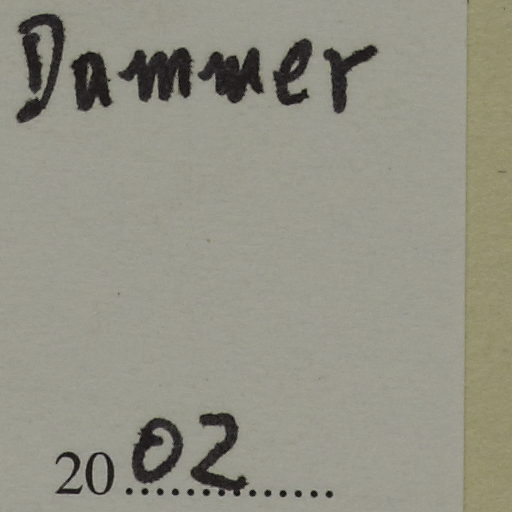 Dammer
2002